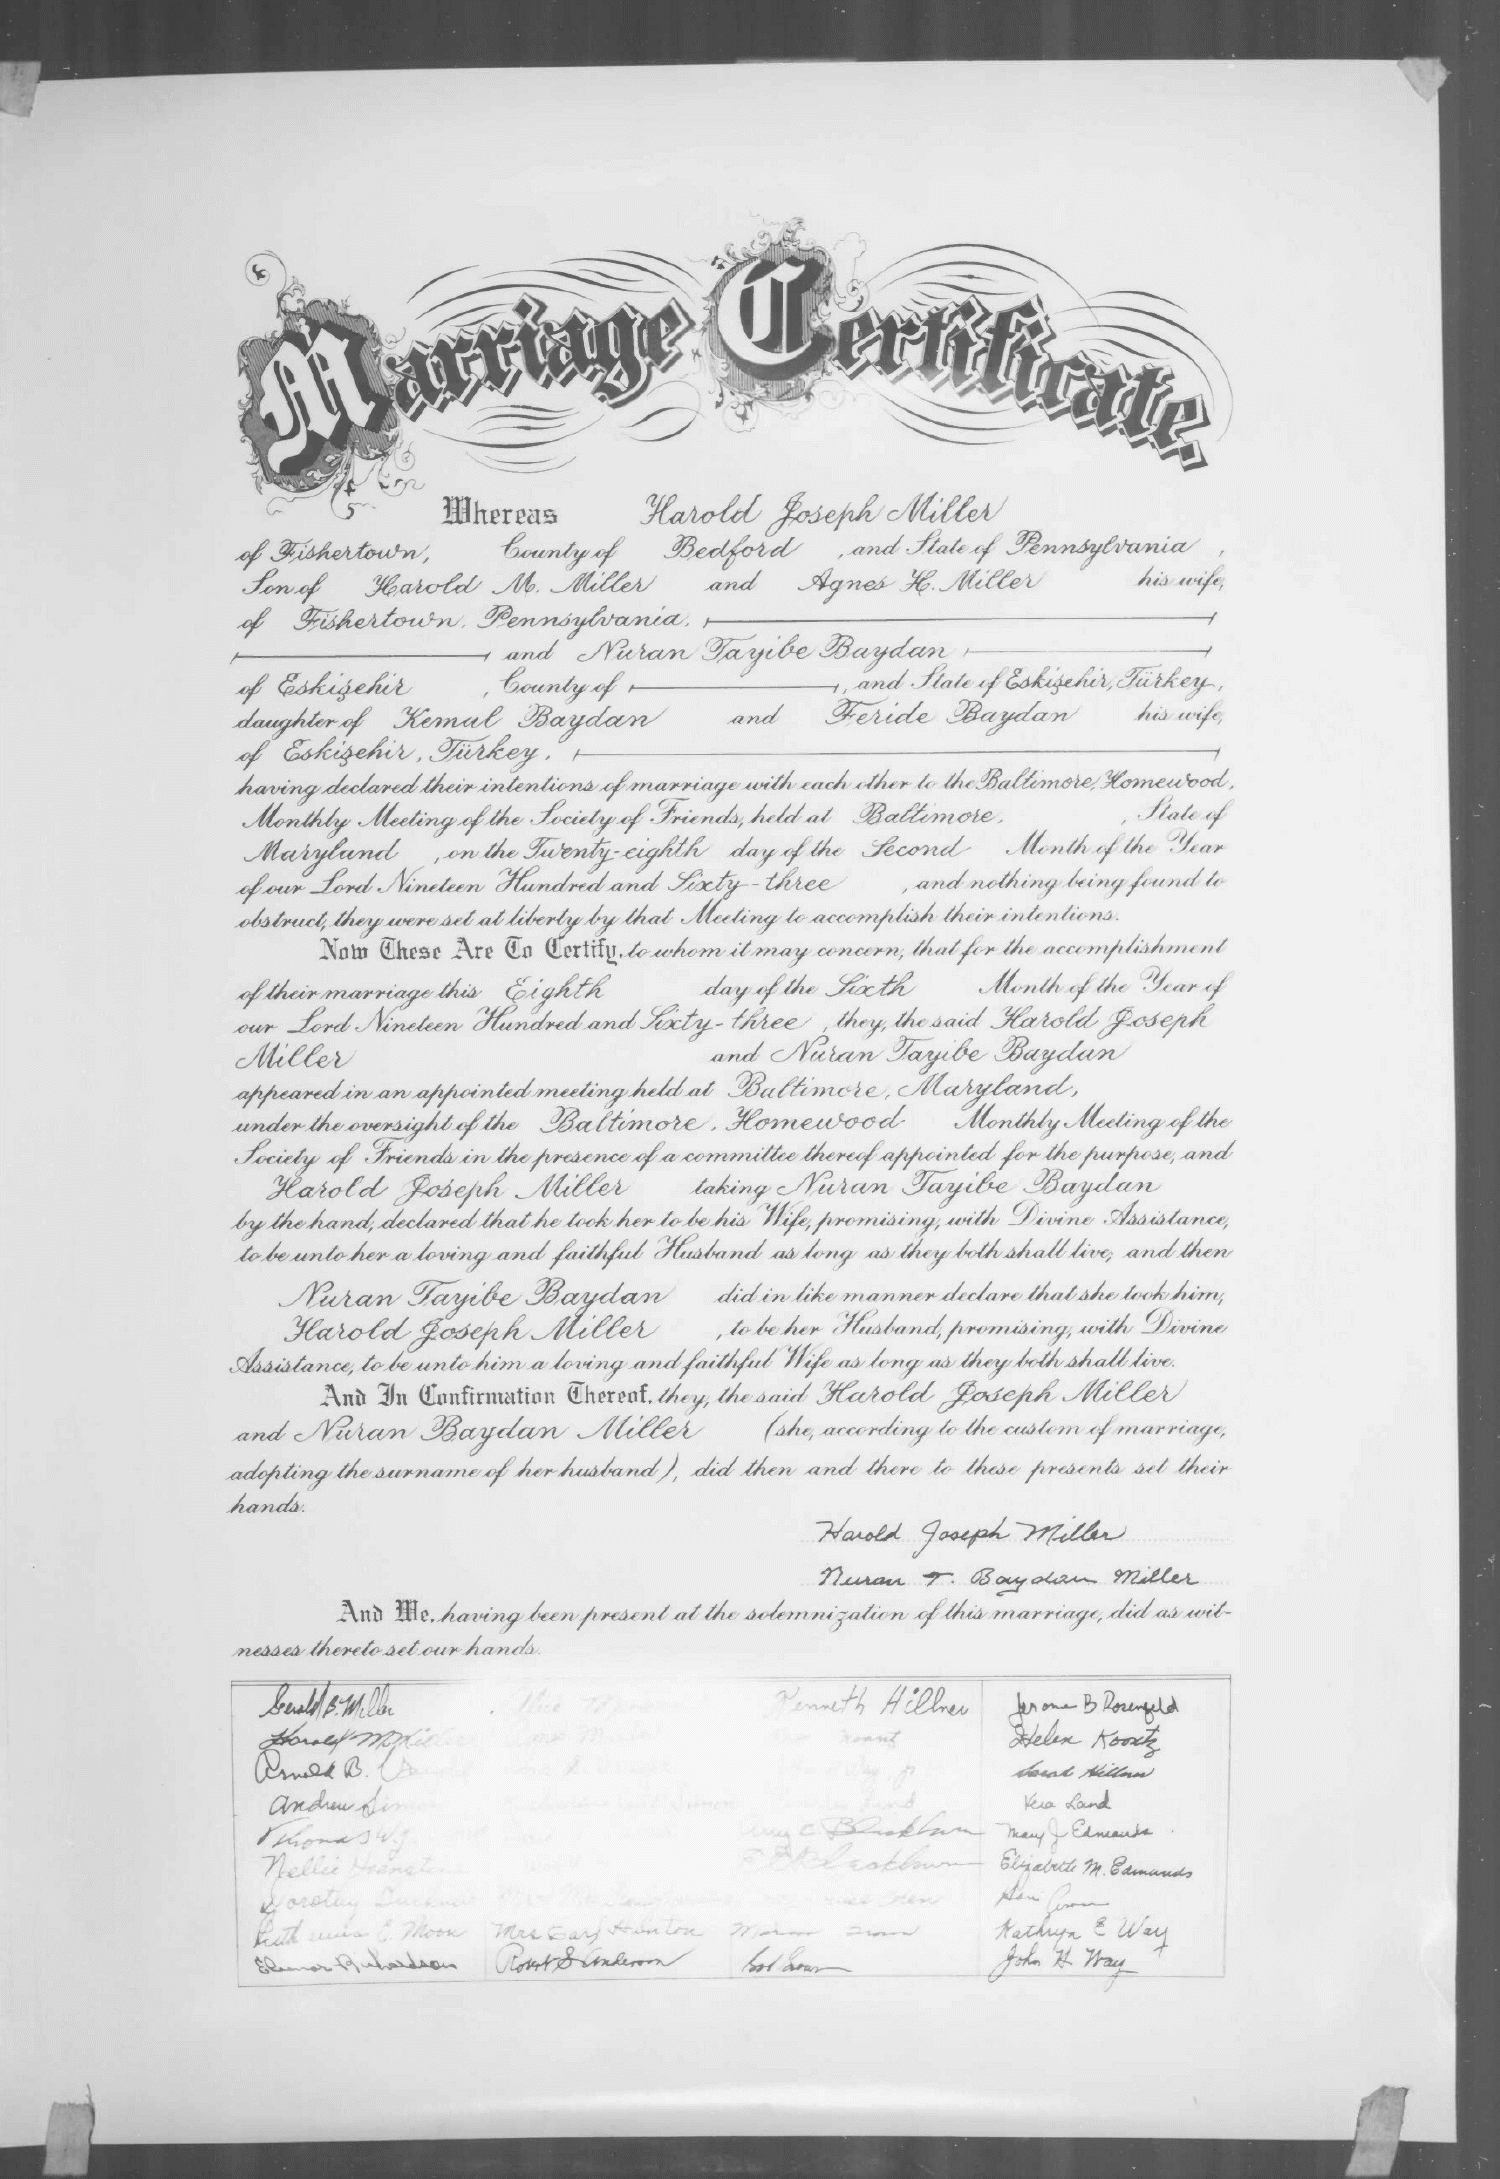 Marriage Certificate.
Whereas Harold Joseph Miller
of Fishertown, County of Bedford, and State of Pennsylvania,
Son of Harold M. Miller and Agnes H. Miller his wife,
of Fishertown, Pennsylvania,
and Nuran Tayibe Baydan
of Eskişehir, County of , and State of Eskişehir, Türkey,
daughter of Kemal Baydan and Feride Baydan his wife,
of Eskişehir, Türkey,
having declared their intentions of marriage with each other to the Baltimore, Homewood,
Monthly Meeting of the Society of Friends, held at Baltimore, , State of
Maryland , on the Twenty-eighth day of the Second Month of the Year
of our Lord Nineteen Hundred and Sixty-three , and nothing being found to
obstruct, they were set at liberty by that Meeting to accomplish their intentions.
Now These Are To Certify, to whom it may concern, that for the accomplishment
of their marriage this Eighth day of the Sixth Month of the Year of
our Lord Nineteen Hundred and Sixty-three , they, the said Harold Joseph
Miller and Nuran Tayibe Baydan
appeared in an appointed meeting held at Baltimore, Maryland,
under the oversight of the Baltimore, Homewood Monthly Meeting of the
Society of Friends in the presence of a committee thereof appointed for the purpose, and
Harold Joseph Miller taking Nuran Tayibe Baydan
by the hand, declared that he took her to be his Wife, promising, with Divine Assistance,
to be unto her a loving and faithful Husband as long as they both shall live; and then
Nuran Tayibe Baydan did in like manner declare that she took him,
Harold Joseph Miller , to be her Husband, promising, with Divine
Assistance, to be unto him a loving and faithful Wife as long as they both shall live.
And In Confirmation Thereof, they, the said Harold Joseph Miller
and Nuran Baydan Miller (she, according to the custom of marriage,
adopting the surname of her husband), did then and there to these presents set their
hands.
Harold Joseph Miller
Nuran T. Baydan Miller
And We, having been present at the solemnization of this marriage, did as wit-
nesses thereto set our hands.
Gerald B. Miller Kenneth Hillner Jerome B Rosenfeld
Harold M Helen Koontz
Arnold B. Sarah Hillner
Andrew Vera Land
Thomas Blackburn Mary J Edmunds
Nellie Blackburn Elizabeth M. Edmunds
Dorothy
C. Moon Mrs Earl Kathryn E Way
Eleanor Richardson Robert S Anderson John H Way